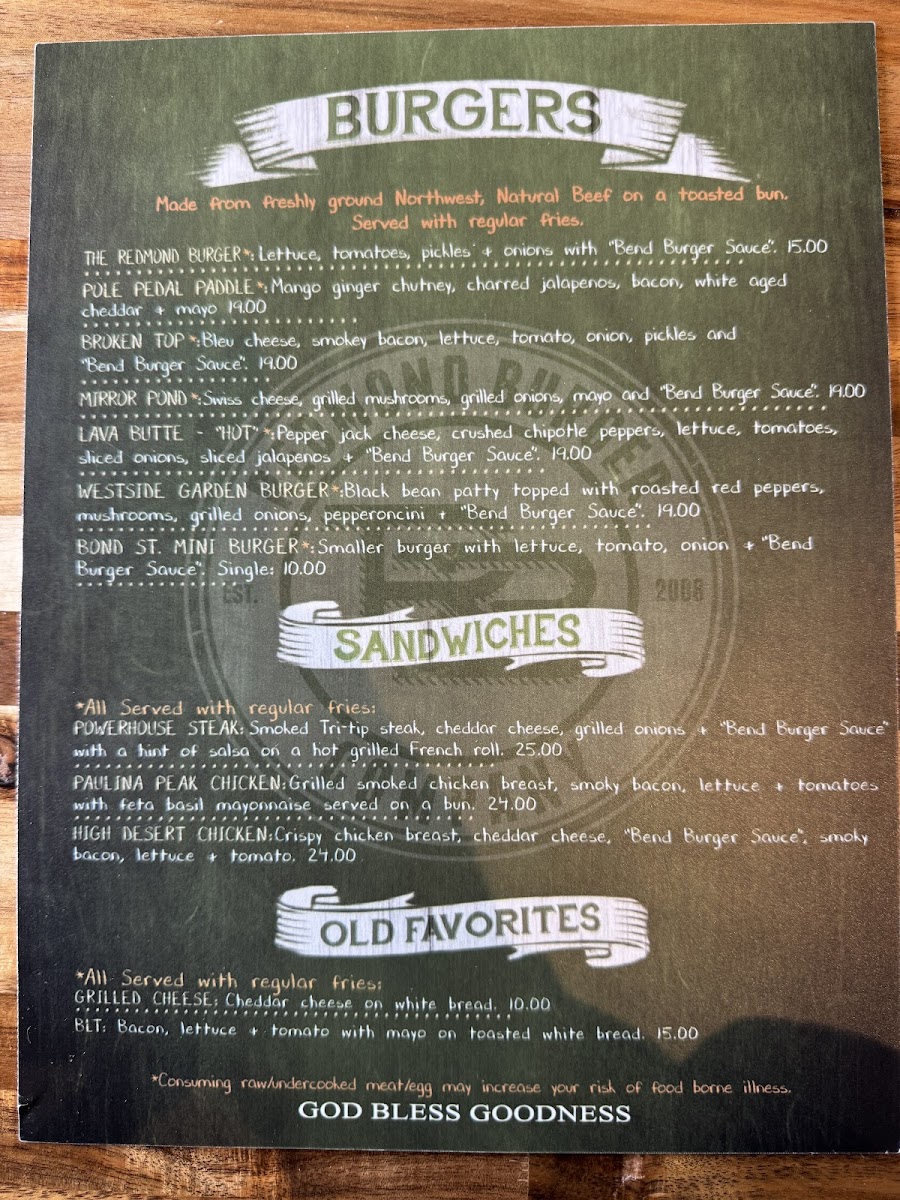 BURGERS
Made from freshly ground Northwest, Natural Beef on a toasted bun.
Served with regular fries.
THE REDMOND BURGER*: Lettuce, tomatoes, pickles + onions with "Bend Burger Sauce". 15.00
POLE PEDAL PADDLE*: Mango ginger chutney, charred jalapenos, bacon, white aged
cheddar + mayo 19.00
BROKEN TOP*: Bleu cheese, smokey bacon, lettuce, tomato, onion, pickles and
"Bend Burger Sauce". 19.00
MIRROR POND*: Swiss cheese, grilled mushrooms, grilled onions, mayo and "Bend Burger Sauce". 19.00
LAVA BUTTE - "HOT"*: Pepper jack cheese, crushed chipotle peppers, lettuce, tomatoes,
sliced onions, sliced jalapenos + "Bend Burger Sauce". 19.00
WESTSIDE GARDEN BURGER*: Black bean patty topped with roasted red peppers,
mushrooms, grilled onions, pepperoncini + "Bend Burger Sauce". 19.00
BOND ST. MINI BURGER*: Smaller burger with lettuce, tomato, onion + "Bend
Burger Sauce". Single: 10.00
REDMOND BURGER
COMPANY
EST. 2008
SANDWICHES
*All Served with regular fries:
POWERHOUSE STEAK: Smoked Tri-tip steak, cheddar cheese, grilled onions + "Bend Burger Sauce"
with a hint of salsa on a hot grilled French roll. 25.00
PAULINA PEAK CHICKEN: Grilled smoked chicken breast, smoky bacon, lettuce + tomatoes
with feta basil mayonnaise served on a bun. 24.00
HIGH DESERT CHICKEN: Crispy chicken breast, cheddar cheese, "Bend Burger Sauce", smoky
bacon, lettuce + tomato. 24.00
OLD FAVORITES
*All Served with regular fries:
GRILLED CHEESE: Cheddar cheese on white bread. 10.00
BLT: Bacon, lettuce + tomato with mayo on toasted white bread. 15.00
*Consuming raw/undercooked meat/egg may increase your risk of food borne illness.
GOD BLESS GOODNESS